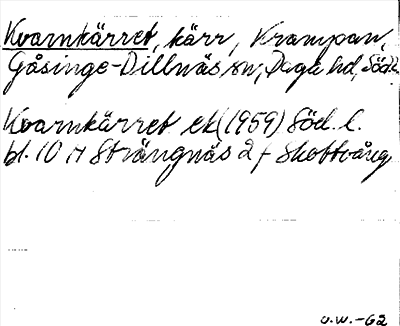 Kvarnkärret, kärr, Krampan,
Gåsinge-Dillnäs sn, Daga hd, Söd.
Kvarnkärret ek (1959) Söd. l.
bl. 10 H Strängnäs 2 f Skottvång
U.W.-62